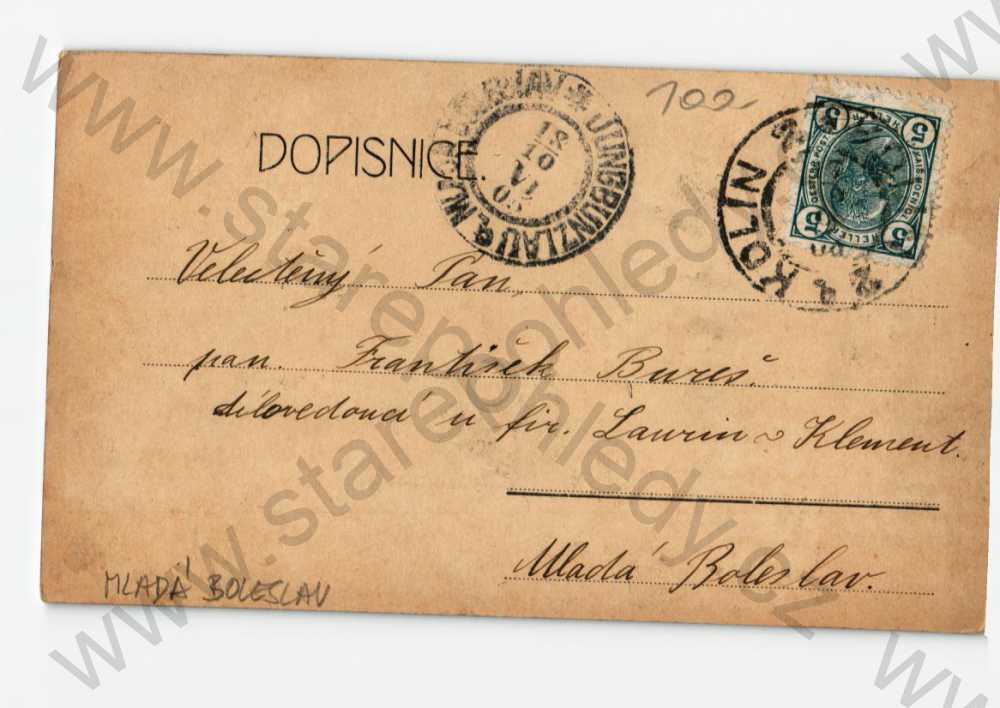 DOPISNICE.
MLADÁ BOLESLAV JUNGBUNZLAU
18
10
VI
05
100-
KOLIN
5 5 5 5
HELLER
Velectěný Pan,
pan. František Bureš.
dílovedoucí u fir. Laurin & Klement.
Mladá Boleslav.
MLADÁ BOLESLAV
www.starepohledy.cz